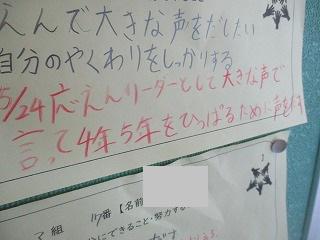 えんで大きな声をだしたい
自分のやくわりをしっかりする
5/24 応えんリーダーとして大きな声で
言って4年5年をひっぱるために声をだす
組 17番【名前
にできること・努力する